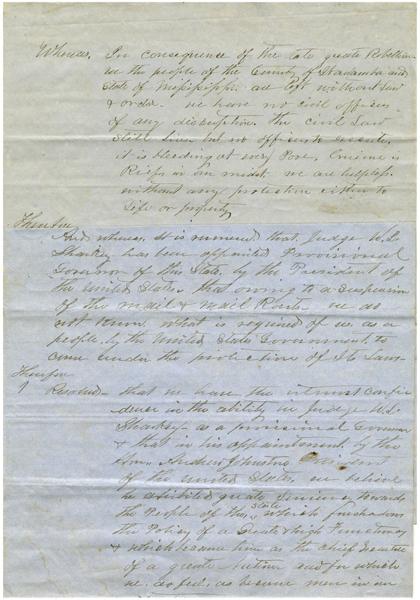 Whereas, In consequence of the late great Rebellion
we the people of the County of Itawamba and
State of Mississippi are left without law
& order. we have no civil officers
of any discription. the civil Law
still lives but no officer to execute,
it is bleeding at every Pore. Crime is
Rief in our midst we are helpless
without any protection either to
Life or property
Therefore
And whereas, It is rumored that Judge W L
Sharkey has been appointed Provisional
Govornor of this State, by the President of
the United States. that owing to a suspension
of the mail & mail Routs we do
not know what is required of us as a
people, by the United States Government to
come under the protection of its Laws
Therefore
1 Resolved – that we have the utmost confi
dence in the ability of Judge W L
Sharkey – as a provisional Govornor
& that in his appointment, by the
Hon. Andrew Johnston President
of the United States, we believe
he exhibited great leniency towards
the People of this State which
the Policy of a Great & high Functionary
& which became him as the chief Executive
of a great Nation and for which
we as become men in our